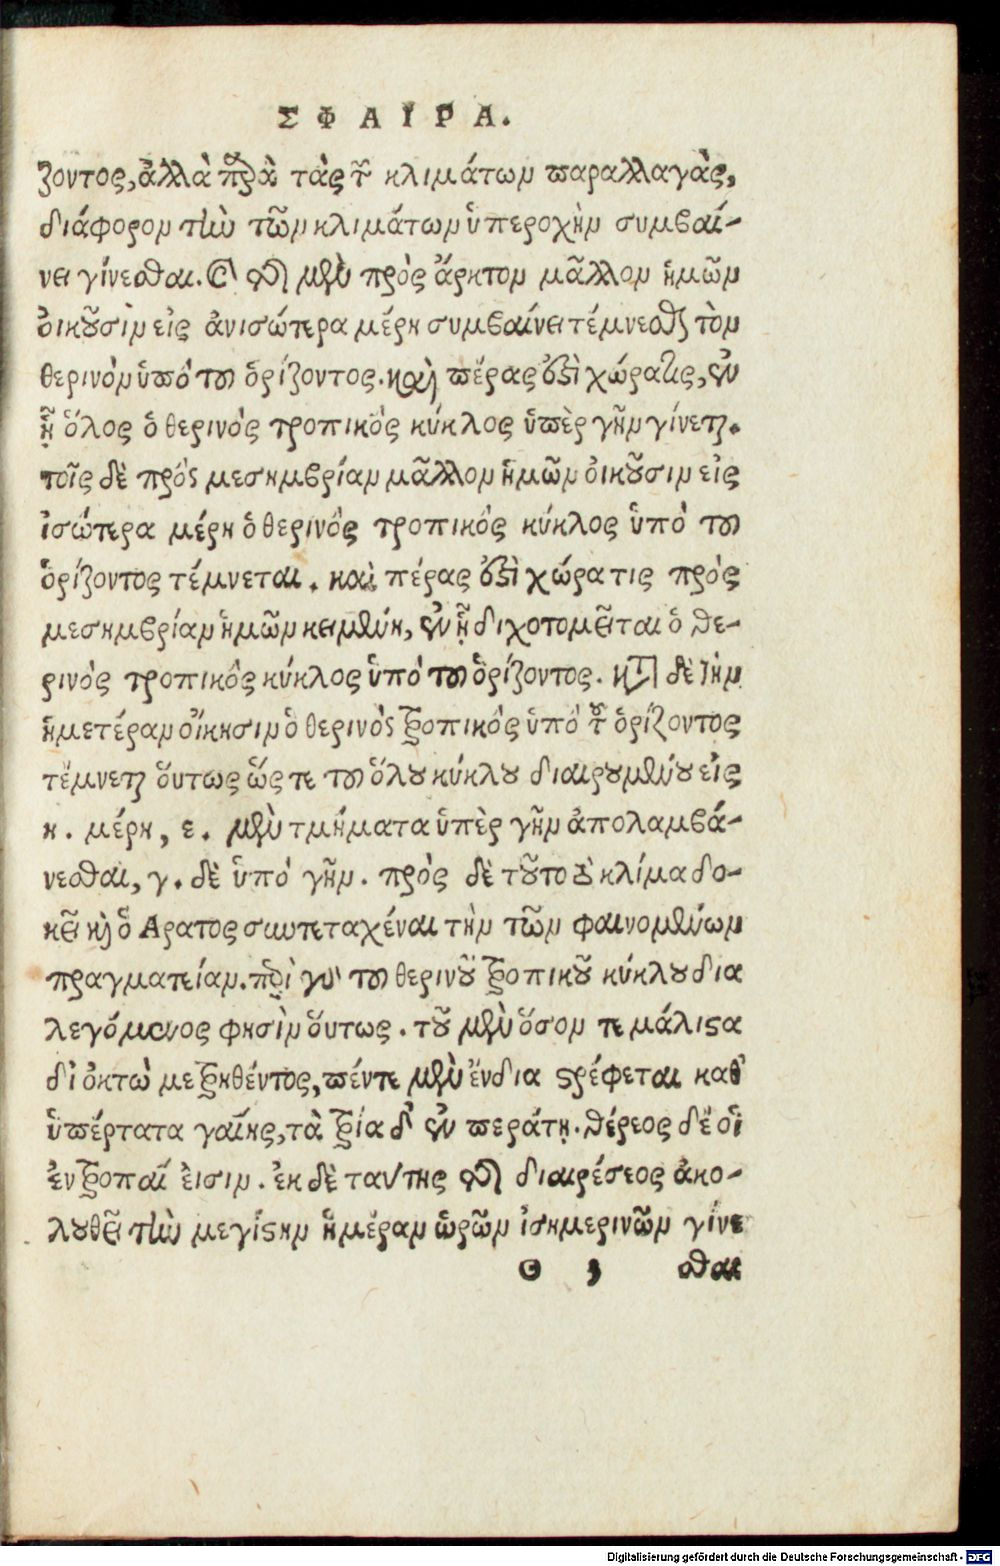 ΣΦΑΙΡΑ.
ζοντος, ἀλλὰ παρὰ τὰς τῶν κλιμάτων παραλλαγὰς,
διάφορον τὴν τῶν κλιμάτων ὑπεροχὴν συμβαί-
νει γίνεσθαι. τοῖς μὲν πρὸς ἄρκτον μᾶλλον ἡμῶν
οἰκοῦσιν εἰς ἀνισώτερα μέρη συμβαίνει τέμνεσθαι τὸν
θερινὸν ὑπὸ τοῦ ὁρίζοντος. καὶ πέρας ἐστὶ χώρα τις, ἐν
ᾗ ὅλος ὁ θερινὸς τροπικὸς κύκλος ὑπὲρ γῆν γίνεται.
τοῖς δὲ πρὸς μεσημβρίαν μᾶλλον ἡμῶν οἰκοῦσιν εἰς
ἰσώτερα μέρη ὁ θερινὸς τροπικὸς κύκλος ὑπὸ τοῦ
ὁρίζοντος τέμνεται. καὶ πέρας ἐστὶ χώρα τις πρὸς
μεσημβρίαν ἡμῶν κειμένη, ἐν ᾗ διχοτομεῖται ὁ θε-
ρινὸς τροπικὸς κύκλος ὑπὸ τοῦ ὁρίζοντος. κατὰ δὲ τὴν
ἡμετέραν οἴκησιν ὁ θερινὸς τροπικὸς ὑπὸ τοῦ ὁρίζοντος
τέμνεται οὕτως ὥς τε τοῦ ὅλου κύκλου διαιρουμένου εἰς
η. μέρη, ε. μὲν τμήματα ὑπὲρ γῆν ἀπολαμβά-
νεσθαι, γ. δὲ ὑπὸ γῆν. πρὸς δὲ τοῦτο τὸ κλίμα δο-
κεῖ καὶ ὁ Αρατος συντεταχέναι τὴν τῶν φαινομένων
πραγματείαν. περὶ γὰρ τοῦ θερινοῦ τροπικοῦ κύκλου δια
λεγόμενος φησὶν οὕτως. τοῦ μὲν ὅσον τε μάλιστα
δἰ ὀκτὼ μετρηθέντος, πέντε μὲν ἔνδια στρέφεται καθ'
ὑπέρτατα γαίης, τὰ τρία δ' ἐν περάτῃ. θέρεος δέ οἱ
ἐν τροπαί εἰσιν. ἐκ δὲ ταύτης τῆς διαιρέσεος ἀκο-
λουθεῖ τὴν μεγίστην ἡμέραν ὡρῶν ἰσημερινῶν γίνε
σθαι
Digitalisierung gefördert durch die Deutsche Forschungsgemeinschaft - DFG